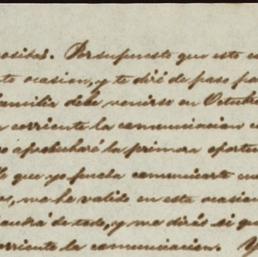 ositas. Porsupuesto que esto es
te ocasion, y te diré de paso pa
familia debe venirse en Octub
corriente la comunicacion c
o aprobecharé la primera oport
lo que yo pueda comunicarte
o, me he valido en esta ocasion
de todo, y me dirás si q
orriente la comunicacion. Y